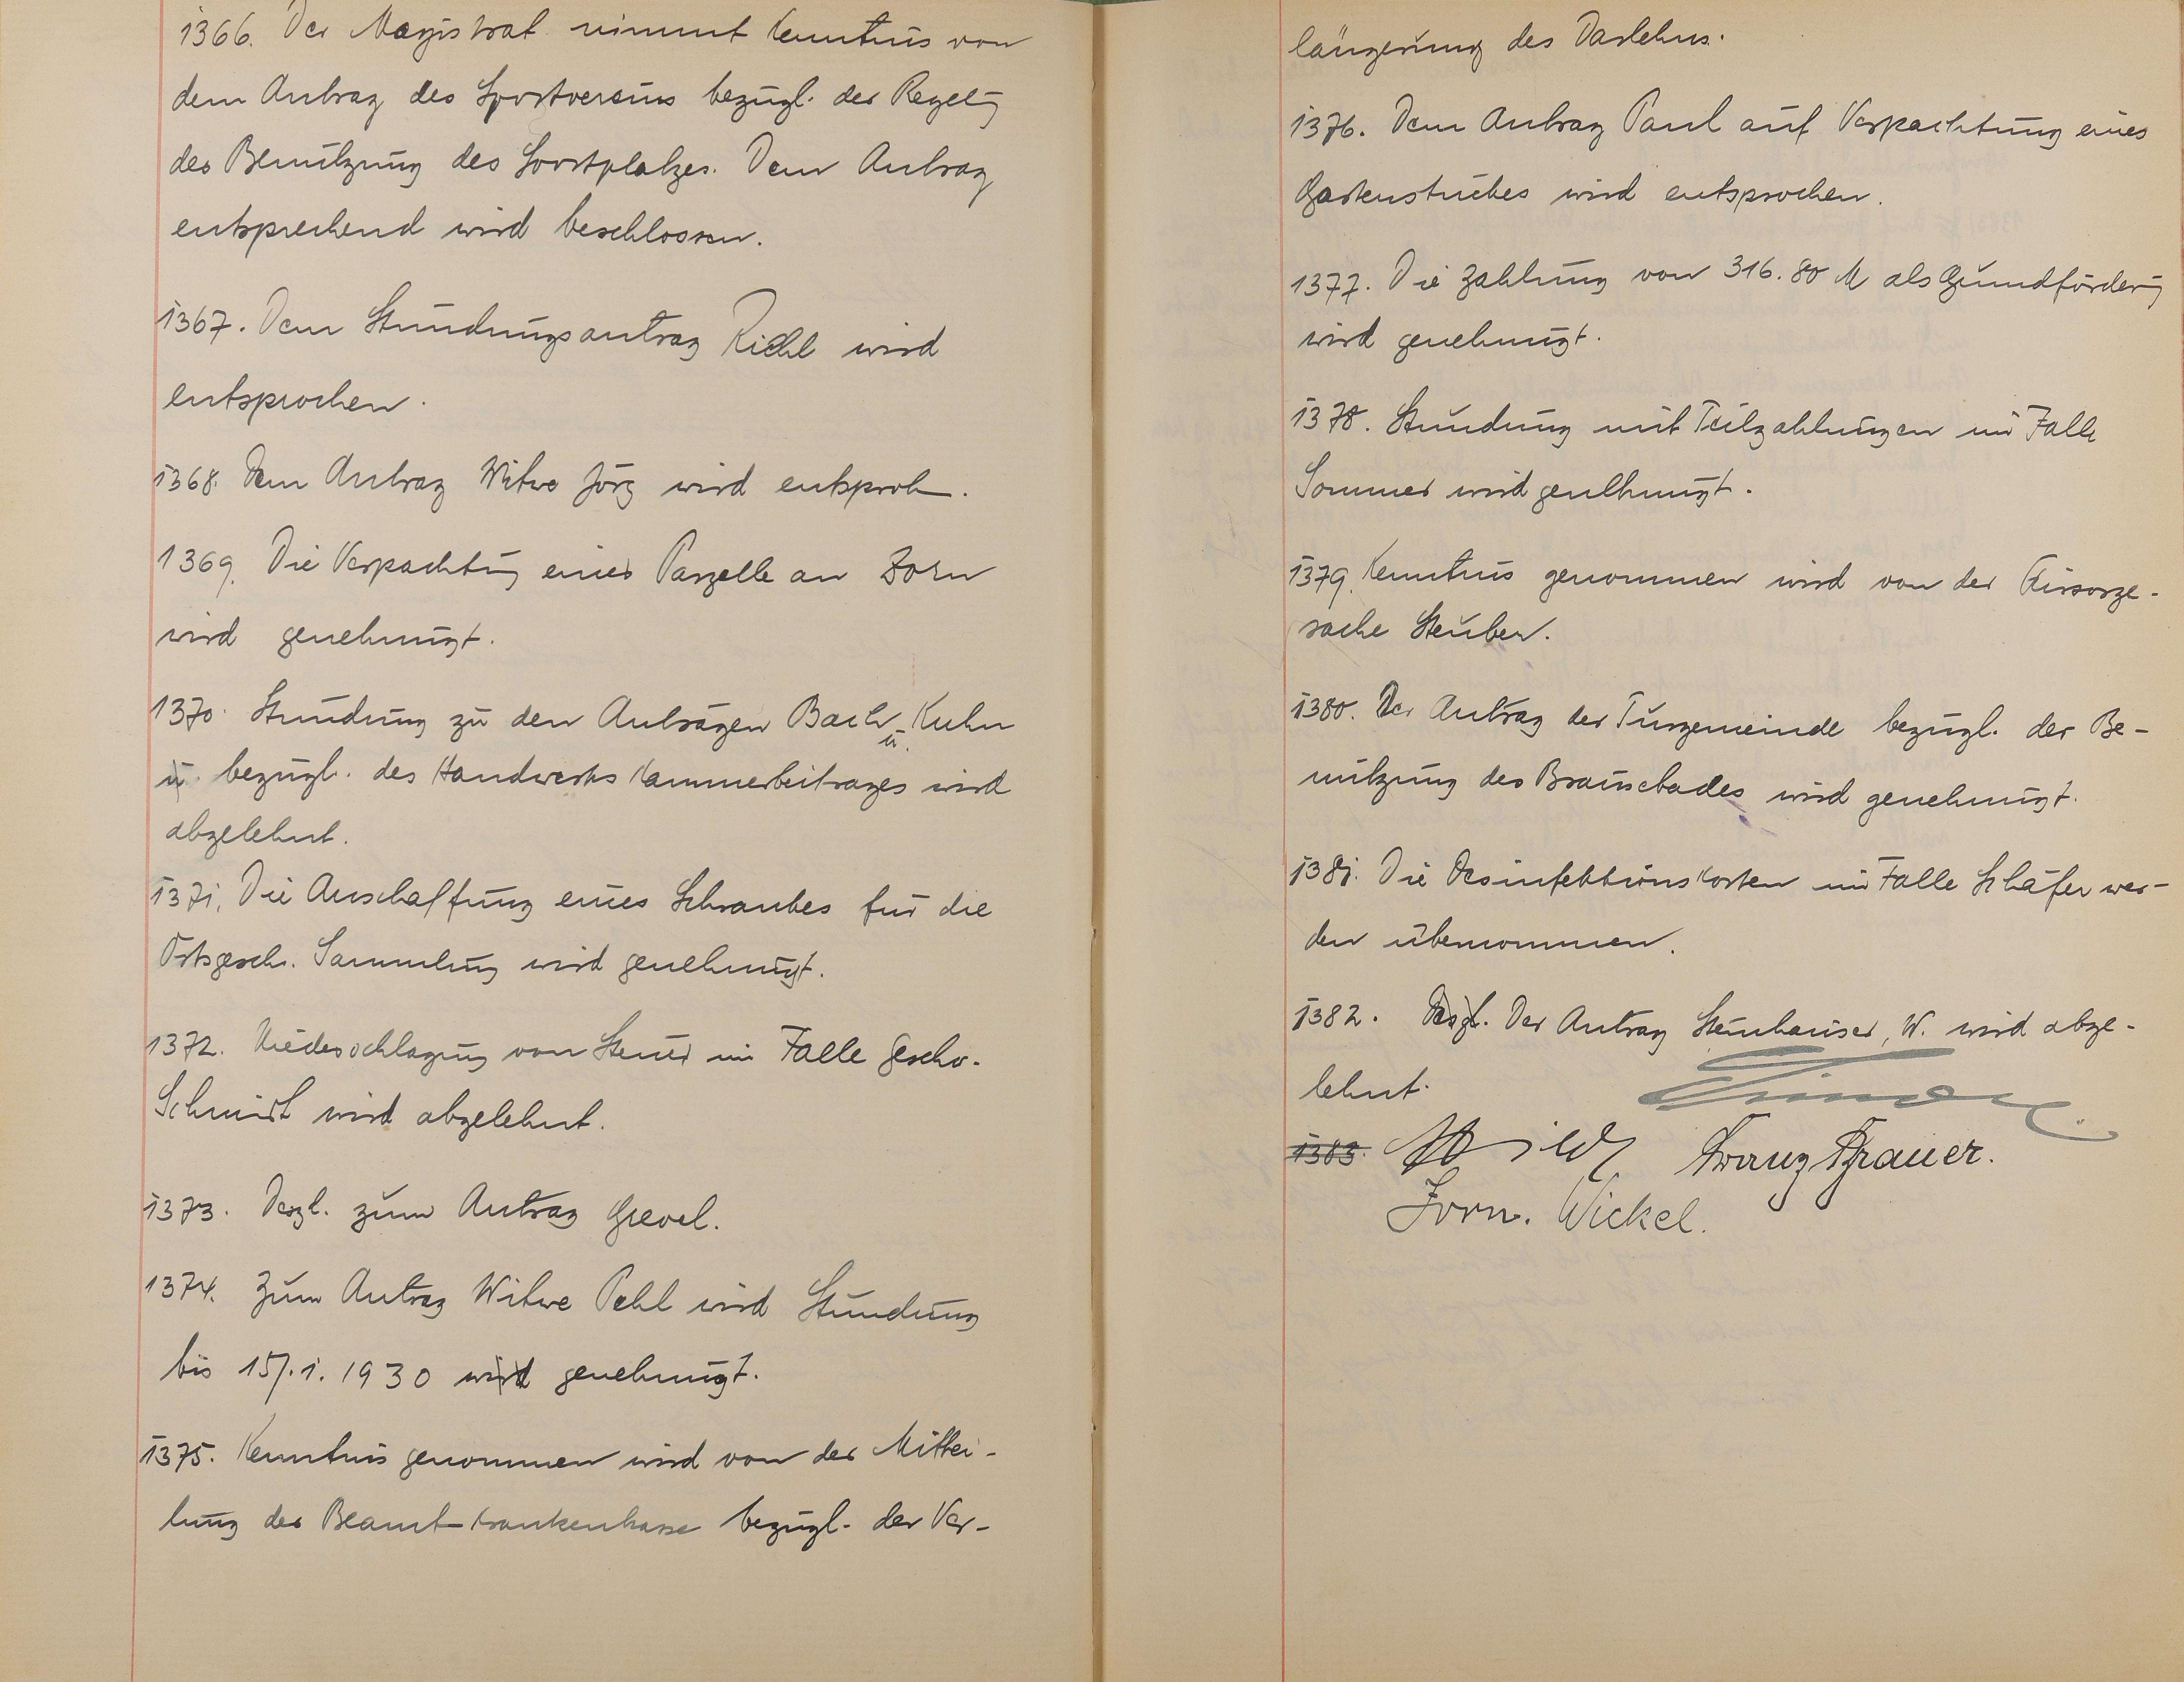 1366. Der Magistrat nimmt Kenntnis von
dem Antrag des Sportvereins bezügl. der Regelg
der Benützung des Sportplatzes. Dem Antrag
entsprechend wird beschlossen.
1367. Dem Stundungsantrag Richl wird
entsprochen.
1368. Dem Antrag Witwe Jörg wird entsproch.
1369. Die Verpachtung einer Parzelle an Born
wird genehmigt.
1370. Stundung zu den Anträgen Bach u. Kuhn
u. bezügl. des Handwerks Kammerbeitrages wird
abgelehnt.
1371. Die Anschaffung eines Schrankes für die
Ortsgesch. Sammlung wird genehmigt.
1372. Niederschlagung von Steuer im Falle Geschw.
Schmidt wird abgelehnt.
1373. Desgl. zum Antrag Grevel.
1374. Zum Antrag Witwe Pehl wird Stundung
bis 15/.1. 1930 wird genehmigt.
1375. Kenntnis genommen wird von der Mittei-
lung der Beamt-krankenkasse bezügl. der Ver-
längerung des Darlehns.
1376. Dem Antrag Paul auf Verpachtung eines
Gartenstückes wird entsprochen.
1377. Die Zahlung von 316.80 M als Grundförderg
wird genehmigt.
1378. Stundung mit Teilzahlungen im Falle
Sommer wird genehmigt.
1379. Kenntnis genommen wird von der Fürsorge-
sache Steuber.
1380. Der Antrag der Turngemeinde bezügl. der Be-
nützung des Brausebades wird genehmigt.
1381. Die Desinfektionskosten im Falle Schäfer wer-
den übernommen.
1382. Desgl. Der Antrag Steinhauser, W. wird abge-
lehnt.
1383.
Franz Brauer.
Jorn. Wickel.